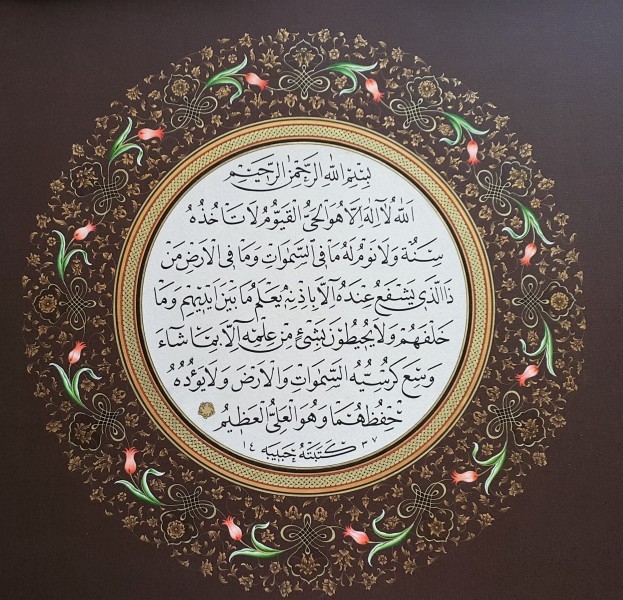 بِسْمِ اللهِ الرَّحْمٰنِ الرَّحِيْمِ
اَللهُ لَا اِلٰهَ اِلَّا هُوَ الْحَيُّ الْقَيُّومُ لَا تَأْخُذُهُ
سِنَةٌ وَلَا نَوْمٌ لَهُ مَا فِي السَّمٰوَاتِ وَمَا فِي الْاَرْضِ مَنْ
ذَا الَّذِي يَشْفَعُ عِنْدَهُ اِلَّا بِاِذْنِهِ يَعْلَمُ مَا بَيْنَ اَيْدِيهِمْ وَمَا
خَلْفَهُمْ وَلَا يُحِيطُونَ بِشَيْءٍ مِنْ عِلْمِهِ اِلَّا بِمَا شَاءَ
وَسِعَ كُرْسِيُّهُ السَّمٰوَاتِ وَالْاَرْضَ وَلَا يَؤُدُهُ
حِفْظُهُمَا وَهُوَ الْعَلِيُّ الْعَظِيمُ
٣٧ كَتَبَتْهُ حَبِيبَه ١٤